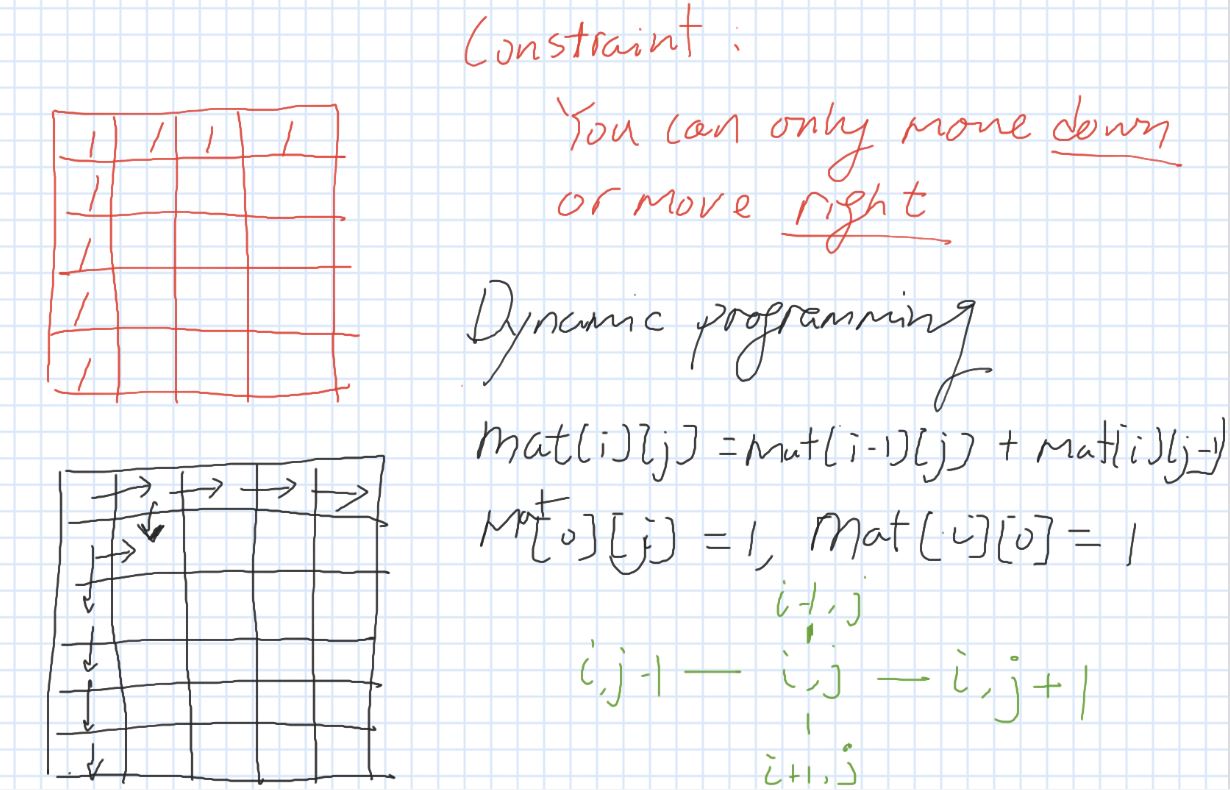 Constraint :
You can only move down
or move right
1 1 1 1
1
1
1
1
Dynamic programming
Mat[i][j] = Mat[i-1][j] + Mat[i][j-1]
Mat[0][j] = 1, Mat[i][0] = 1
i-1, j
i, j-1 — i, j — i, j+1
i+1, j